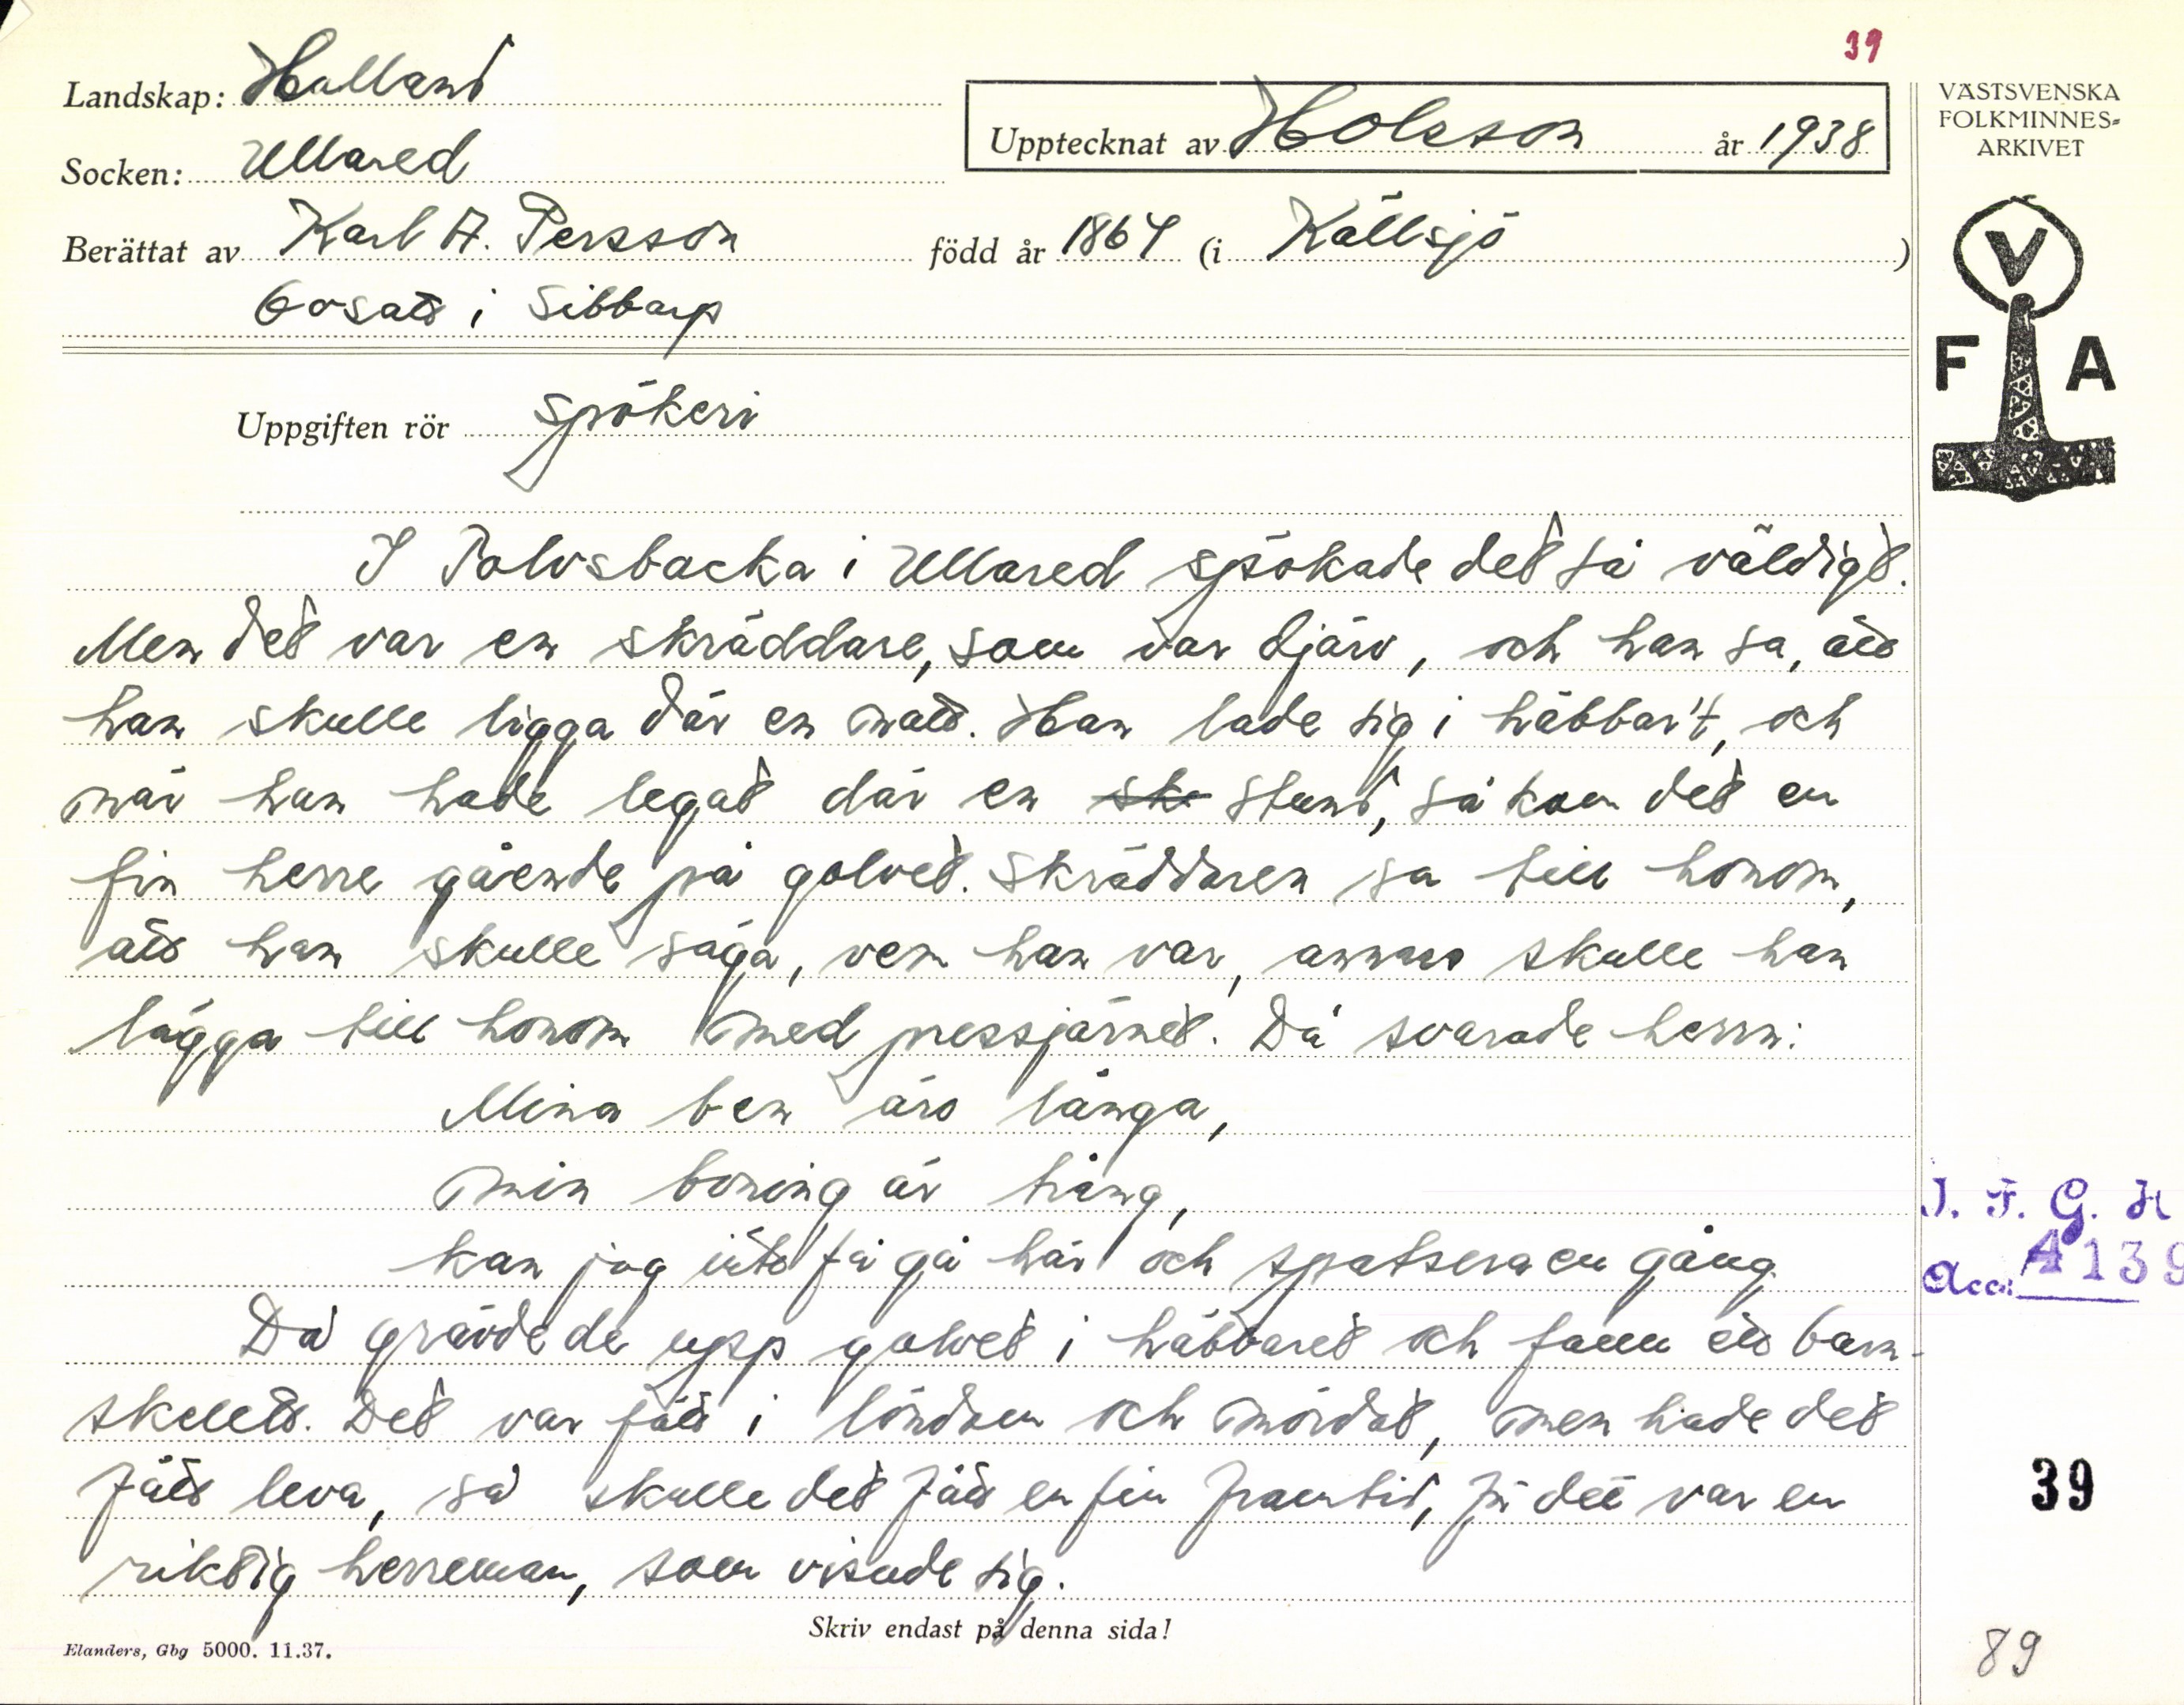 39
Landskap: Halland
Upptecknat av Holsson år 1938
VÄSTSVENSKA
FOLKMINNES=
ARKIVET
Socken: Ullared
Berättat av Karl A. Persson född år 1864 (i Källsjö)
bosatt i Sibbarp
V
F A
Uppgiften rör spökeri
I Tolvsbacka i Ullared spökade det så väldigt.
Men det var en skräddare, som var djärv, och han sa, att
han skulle ligga där en natt. Han lade sig i häbbar't, och
när han hade legat där en sk stund, så kom det en
fin herre gående på golvet. Skräddaren sa till honom,
att han skulle säga, vem han var, annars skulle han
lägga till honom med pressjärnet. Då svarade herrn:
Mina ben äro långa,
min boning är trång,
kan jag inte få gå här och spatsera en gång
Då grävde de upp golvet i häbbaret och fann ett barn-
skelett. Det var fött i löndom och mördat, men hade det
fått leva, så skulle det fått en fin framtid, för det var en
riktig herreman, som visade sig.
Skriv endast på denna sida!
Elanders, Gbg 5000. 11.37.
I. F. G. H
Acc: 4139
39
89